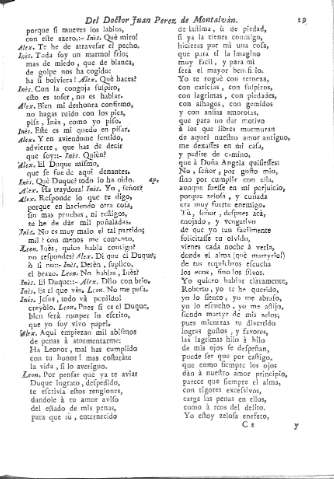 Del Doctor Juan Perez de Montalván. 19
porque si mueves los labios,
con este azero:- Inés. Qué miro!
Alex. Te he de atravesar el pecho.
Inés. Toda soy un marmol frio;
mas de miedo, que de blanca,
de golpe nos ha cogido:
ha si bolviera! Alex. Qué haces?
Inés. Con la congoja suspiro,
esto es toser, no es hablar.
Alex. Bien mi deshonra confirmo,
no hagas ruido con los pies,
Inés. como yo piso.
Inés. Este es mi quedo en pisar.
Alex. Y en aviendome sentido,
advierte, que has de decir
que soy:- Inés. Quien?
Alex. El Duque mismo,
que se fue de aqui denantes.
Inés. Qué Duque? todo lo ha oído. ap.
Alex. Ha traydora! Inés. Yo, señor?
Alex. Responde lo que te digo,
porque en haciendo otra cosa,
sin mas pruebas, ni testigos,
te he de dar mil puñaladas.
Inés. No es muy malo el tal partido;
mil? con menos me contento.
Leon. Inés, quién habla contigo?
no respondes? Alex. Di que el Duque,
Inés. Deten, suplico,
el brazo. Leon. No hablas, Inés?
Inés. El Duque:- Alex. Dilo con brio.
Inés. Es el que vés. Leon. No me pesa.
Inés. Jesus, todo vá perdido!
Leon. Pues si es el Duque,
bien será romper lo escrito,
que yo soy vivo papel.
Alex. Aqui empiezan mil abismos
de penas à atormentarme:
Ha Leonor, mal has cumplido
con tu honor! mas costaráte
la vida, si lo averiguo.
Leon. Por pensar que ya te avias
Duque logrado, despedido,
te escrivia estos renglones,
dandole à tu amor aviso
del estado de mis penas,
para que tú, enternecido
de lastima, ù de piedad,
si ya la tienes conmigo,
hicieras por mi una cosa,
que para ti la imagino
muy facil, y para mi
será el mayor beneficio.
Yo te rogué con ternezas,
con caricias, con suspiros,
con lagrimas, con piedades,
con alhagos, con gemidos
y con ansias amorosas,
que para un dar motivo
à los que libres murmuran
de aquel nuestro amor antiguo,
me dexasses en mi casa,
y padre de camino,
que à Doña Angela quisiesses:
No, señor, por gusto mio,
sino por cumplir con ella,
aunque fuesse en mi perjuicio,
porque zelosa, y cuidada
era muy fuerte enemigo.
Tú, señor, despues acá,
enojado, y vengativo
de que yo tan facilmente
solicitasse tu olvido,
vienes cada noche à verla,
donde el alma (qué martyrio!)
de tus requiebros escucha
los ecos, sino los silvos.
Yo quiero hablar claramente,
Roberto, yo te he querido,
yo lo siento, yo me abraso,
yo lo escucho, yo me aflijo,
siendo martyr de mis zelos;
pues mientras tu divertido
logras gustos, y favores,
las lagrimas hilo à hilo
de mis ojos se despeñan,
puede ser que por castigo,
que como siempre los ojos
dán à nuestro amor principio,
parece que siempre el alma,
con rigores excessivos,
carga las penas en ellos,
como à reos del delito.
Yo estoy zelosa enefeto,
C 2 y